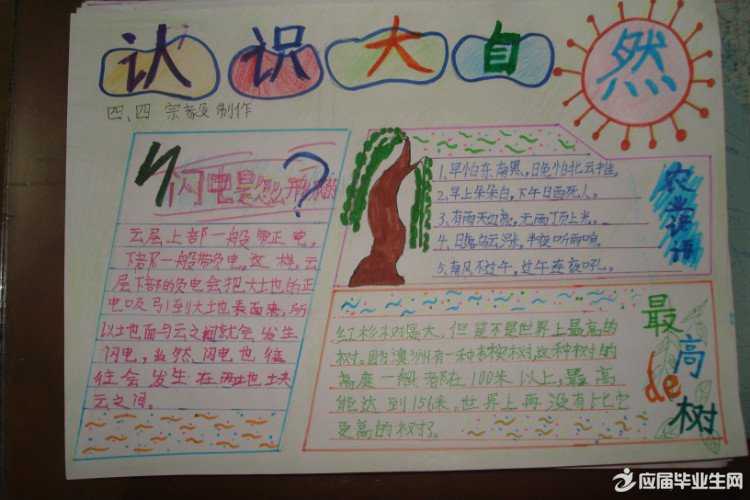 认识大自然
四、四 宗毅制作
闪电是怎么形成
云层上部一般带正电,
下部一般带负电,这样,云
层下部的负电会把大地的正
电吸引到大地表面来,所
以地面与云之间就会发生
闪电,当然,闪电也往
往会发生在两块
云之间。
农业谚语
1.早怕东南黑,日怕北云推,
2.早上朵朵白,下午日西死人。
3.有雨天边亮,无雨顶上光。
4.日落乌云涨,半夜听雨响。
5.南风不过午,过午连夜吼。
最高de树
红杉树最大,但是不是世界上最高的
树。因澳州有一种桉树,这种树的
高度一般都在100米以上,最高
能达到156米。世界上再没有比它
更高的树了。
应届毕业生网